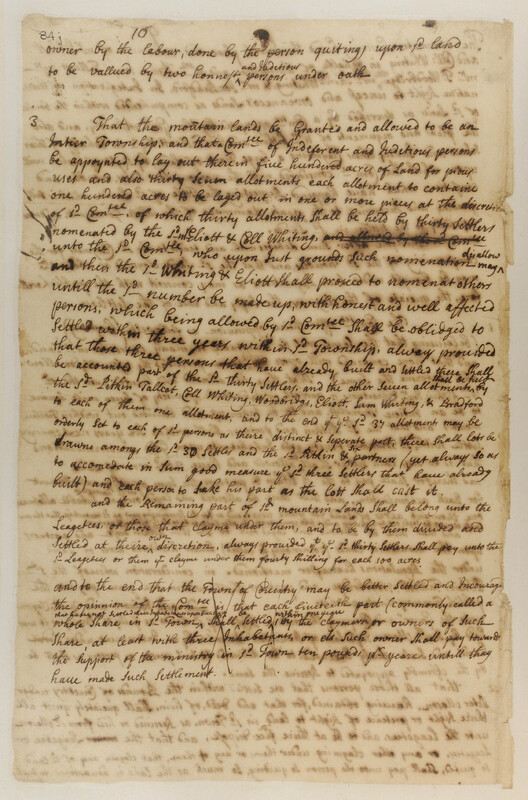 84 10
owner by the labour, done by the person quiting, upon sd land
to be vallued by two honnest and Juditious persons under oath
3 That the mountain lands be Granted and allowed to be an
Intier Township: and that a Comtee of Indeferent and Juditious persons
be appoynted to lay out therein five hundred acres of Land for pious
uses and also thirty seven allotments each allotment to containe
one hundered acres to be layed out in one or more pieces at the discretion
of sd Comtee, of which thirty allotments Shall be held by thirty Settlers
nomenated by the sd Mr Eliott & Coll Whiting, and allowed by the sd Comtee
unto the sd Comtee who upon Just grounds Such nomenation may disallow
and then the sd Whiting & Eliott Shall proseed to nomenat others
untill the sd number be made up, with honest and well affected
persons, which being allowed by sd Comtee Shall be oblidged to
Settled within three years within sd Township, alway provided
that those three persons that have already built and Settled there Shall
be accounted part of the sd thirty Settlers, and the other Seven allotments, shall be held by
the sd Pitkin Tallcot, Coll Whiting, Woodbridge, Eliott, Sam Whiting, & Bradford
to each of them one allotment, and to the end ye sd 37 allotment may be
orderly Set to each of sd persons as theire distinct & Seperate part, there Shall lots be
drawne amongs the sd 30 Settlers and the sd Pitkin & Six partners (yet always so as
to accomedate in Sum good measure ye sd three Settlers that have already
built) and each person to take his part as the lott Shall cast it
and the Remaining part of sd mountain Lands Shall belong unto the
Leagetees, or those that clayme under them, and to be by them divided and
Settled at theire own discretion, always provided yt ye sd thirty Settlers Shall pay unto the
sd Leagetees or them yt clayme under them fourty Shilling for each 100 acres
and to the end that the Town of Coventry may be better Settled and Encourage
the oppinion of the Comtee is that each fiveteenth part (commonly called a
whole Share in sd Town Shall Settled within one year by the claymers or owners of Such
Share, at least with three Inhabetants, or els Such owner Shall pay towards
the Support of the ministry in sd Town ten pounds pr yeare untill thay
have made Such Settlement.